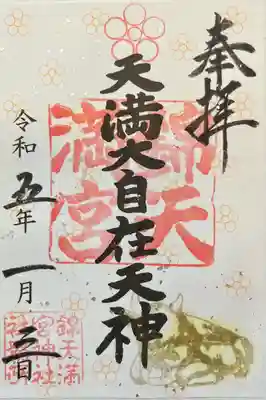 奉拝
錦天満宮
天満大自在天神
令和五年一月三日
錦天満
宮神社